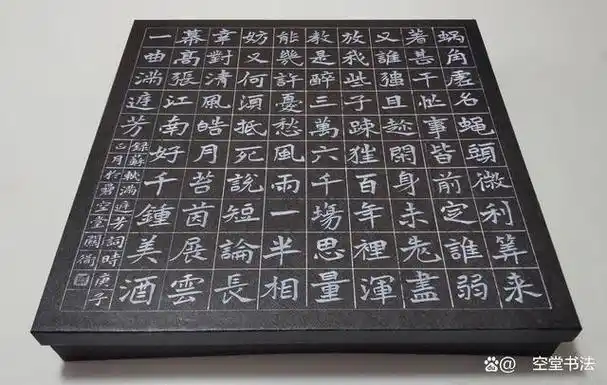 蝸角虛名蠅頭微利筭来
著甚干忙事皆前定誰弱
又誰強且趂閑身未老盡
放我些子踈狂百年裡渾
教是醉三萬六千塲思量
能幾許憂愁風雨一半相
妨又何須抵死說短論長
幸對清風皓月苔茵展雲
幕高張江南好千鍾美酒
一曲滿庭芳
錄蘇軾滿庭芳詞時庚子
正月於空堂關衛
@空堂书法